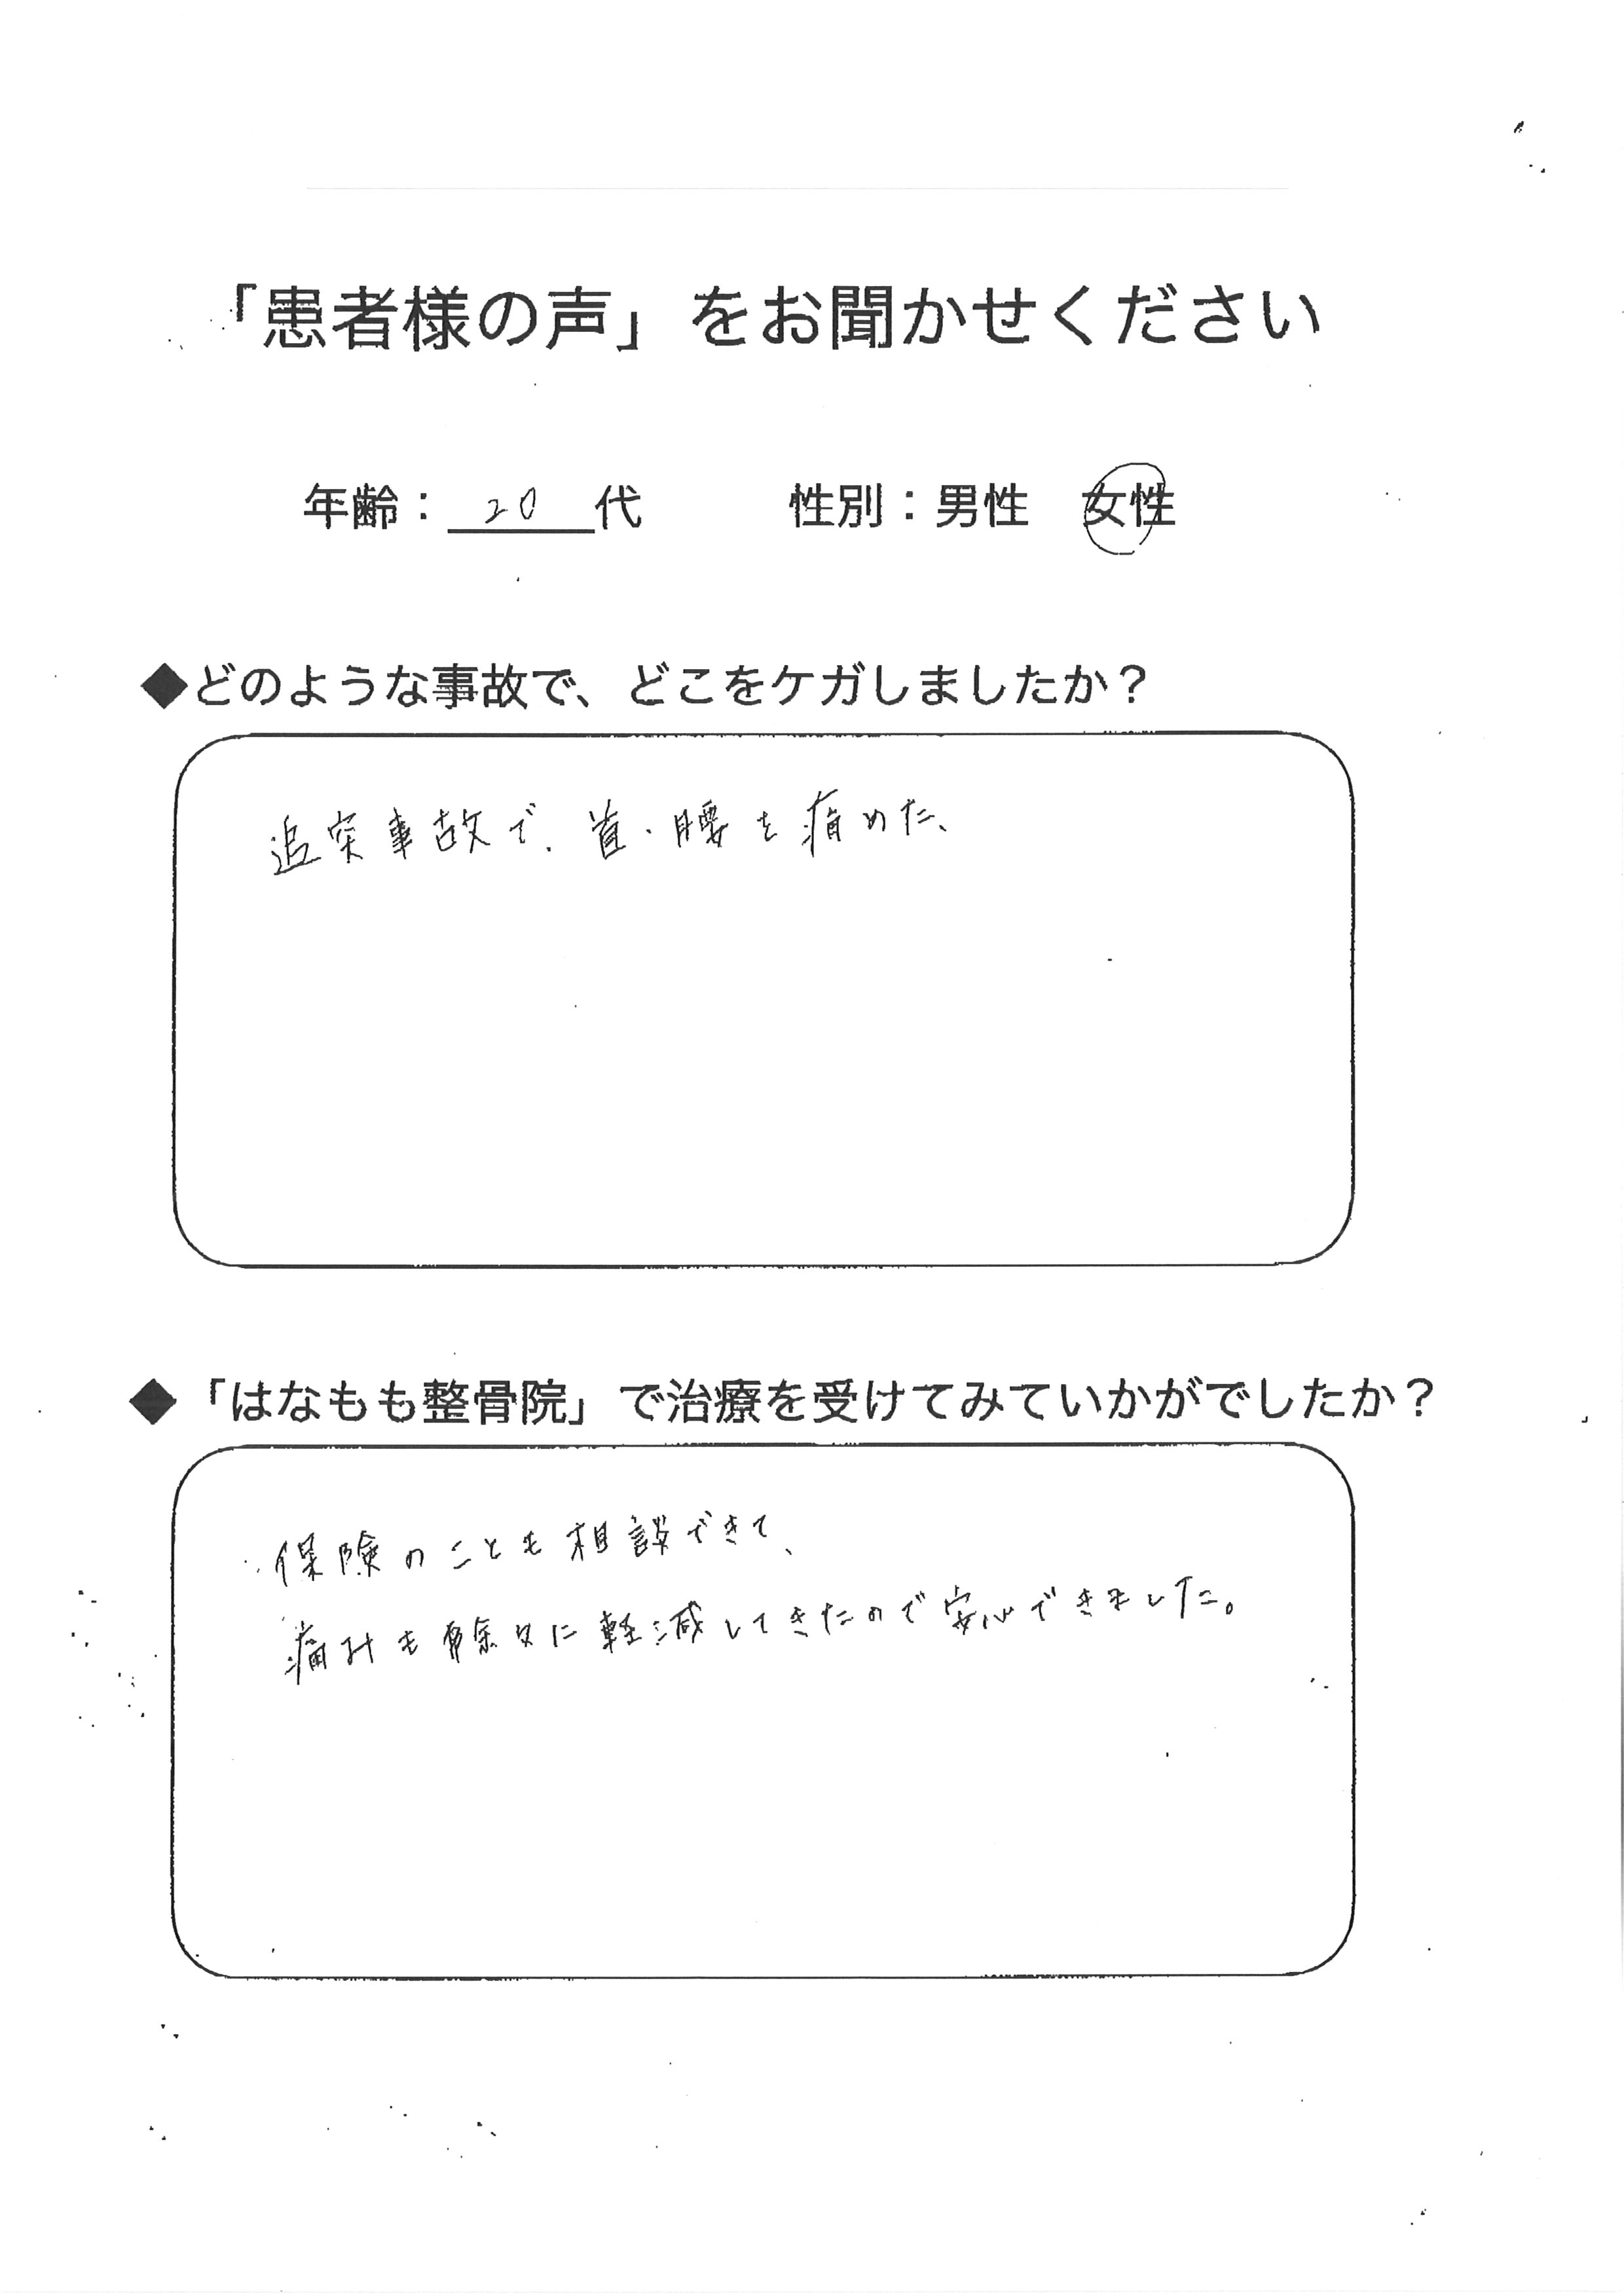 「患者様の声」をお聞かせください
年齢：20代　性別：男性　女性
◆どのような事故で、どこをケガしましたか？
追突事故で、首・腰を痛めた、
◆「はなもも整骨院」で治療を受けてみていかがでしたか？
保険のことも相談できて、
痛みも除々に軽減してきたので安心できました。